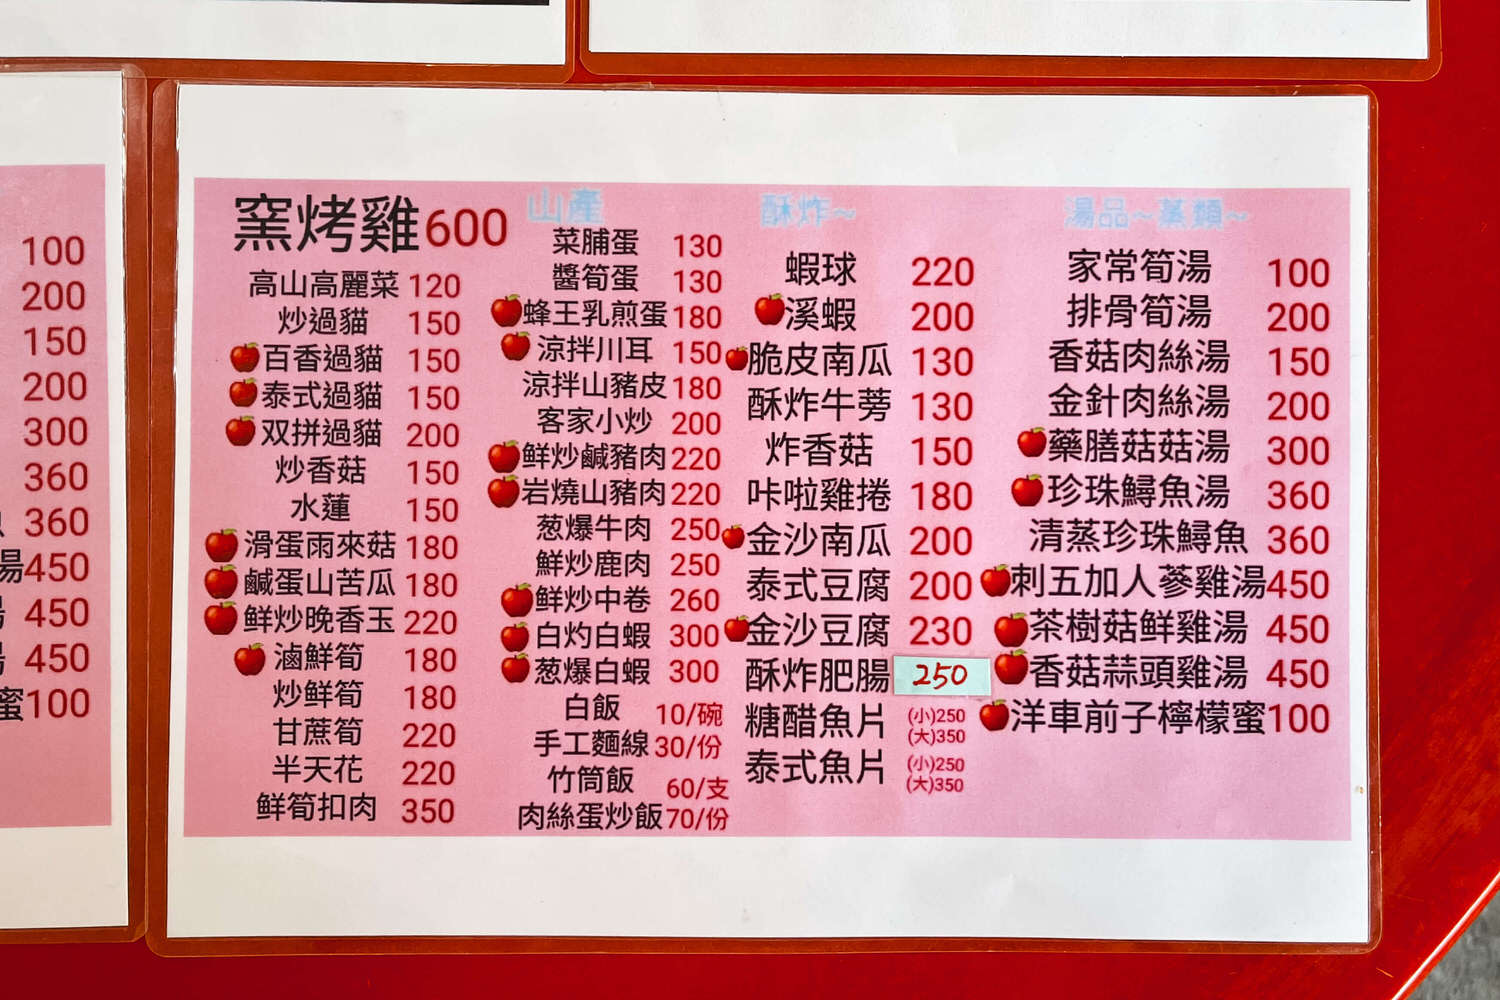 100
200
150
200
300
360
360
湯450
450
450
蜜100
窯烤雞600
高山高麗菜 120
炒過貓 150
百香過貓 150
泰式過貓 150
双拼過貓 200
炒香菇 150
水蓮 150
滑蛋雨來菇 180
鹹蛋山苦瓜 180
鮮炒晚香玉 220
滷鮮筍 180
炒鮮筍 180
甘蔗筍 220
半天花 220
鮮筍扣肉 350
山產
菜脯蛋 130
醬筍蛋 130
蜂王乳煎蛋 180
涼拌川耳 150
涼拌山豬皮 180
客家小炒 200
鮮炒鹹豬肉 220
岩燒山豬肉 220
葱爆牛肉 250
鮮炒鹿肉 250
鮮炒中卷 260
白灼白蝦 300
葱爆白蝦 300
白飯 10/碗
手工麵線 30/份
竹筒飯 60/支
肉絲蛋炒飯 70/份
酥炸~
蝦球 220
溪蝦 200
脆皮南瓜 130
酥炸牛蒡 130
炸香菇 150
咔啦雞捲 180
金沙南瓜 200
泰式豆腐 200
金沙豆腐 230
酥炸肥腸 250
糖醋魚片 (小)250
(大)350
泰式魚片 (小)250
(大)350
湯品~蒸類~
家常筍湯 100
排骨筍湯 200
香菇肉絲湯 150
金針肉絲湯 200
藥膳菇菇湯 300
珍珠鱘魚湯 360
清蒸珍珠鱘魚 360
刺五加人蔘雞湯 450
茶樹菇鮮雞湯 450
香菇蒜頭雞湯 450
洋車前子檸檬蜜 100